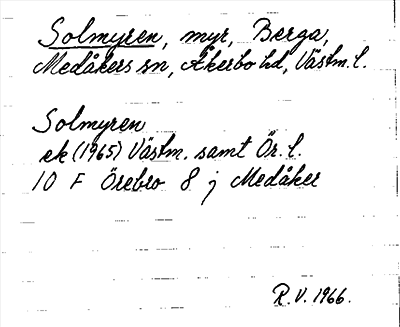 Solmyren, myr, Berga,
Medåkers sn, Åkerbo hd, Västm. l.
Solmyren
ek (1965) Västm. samt Ör. l.
10 F Örebro 8 j Medåker
R.V. 1966.